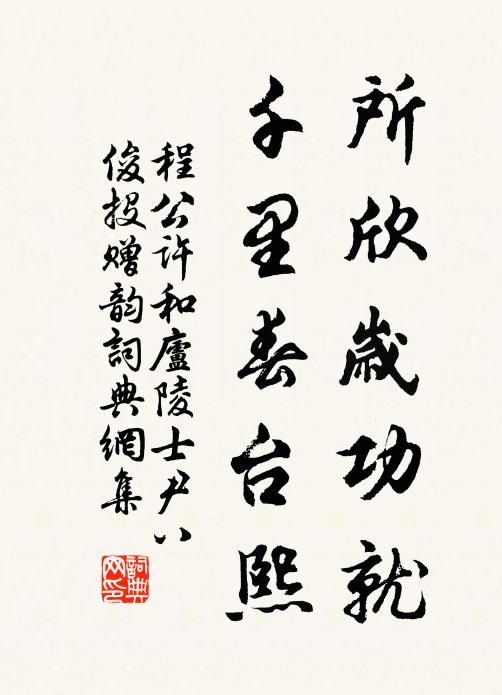 所欣歲功就
千里春台熙
程公許和廬陵士尹八
俊投贈韵詞典網集
詞典网印